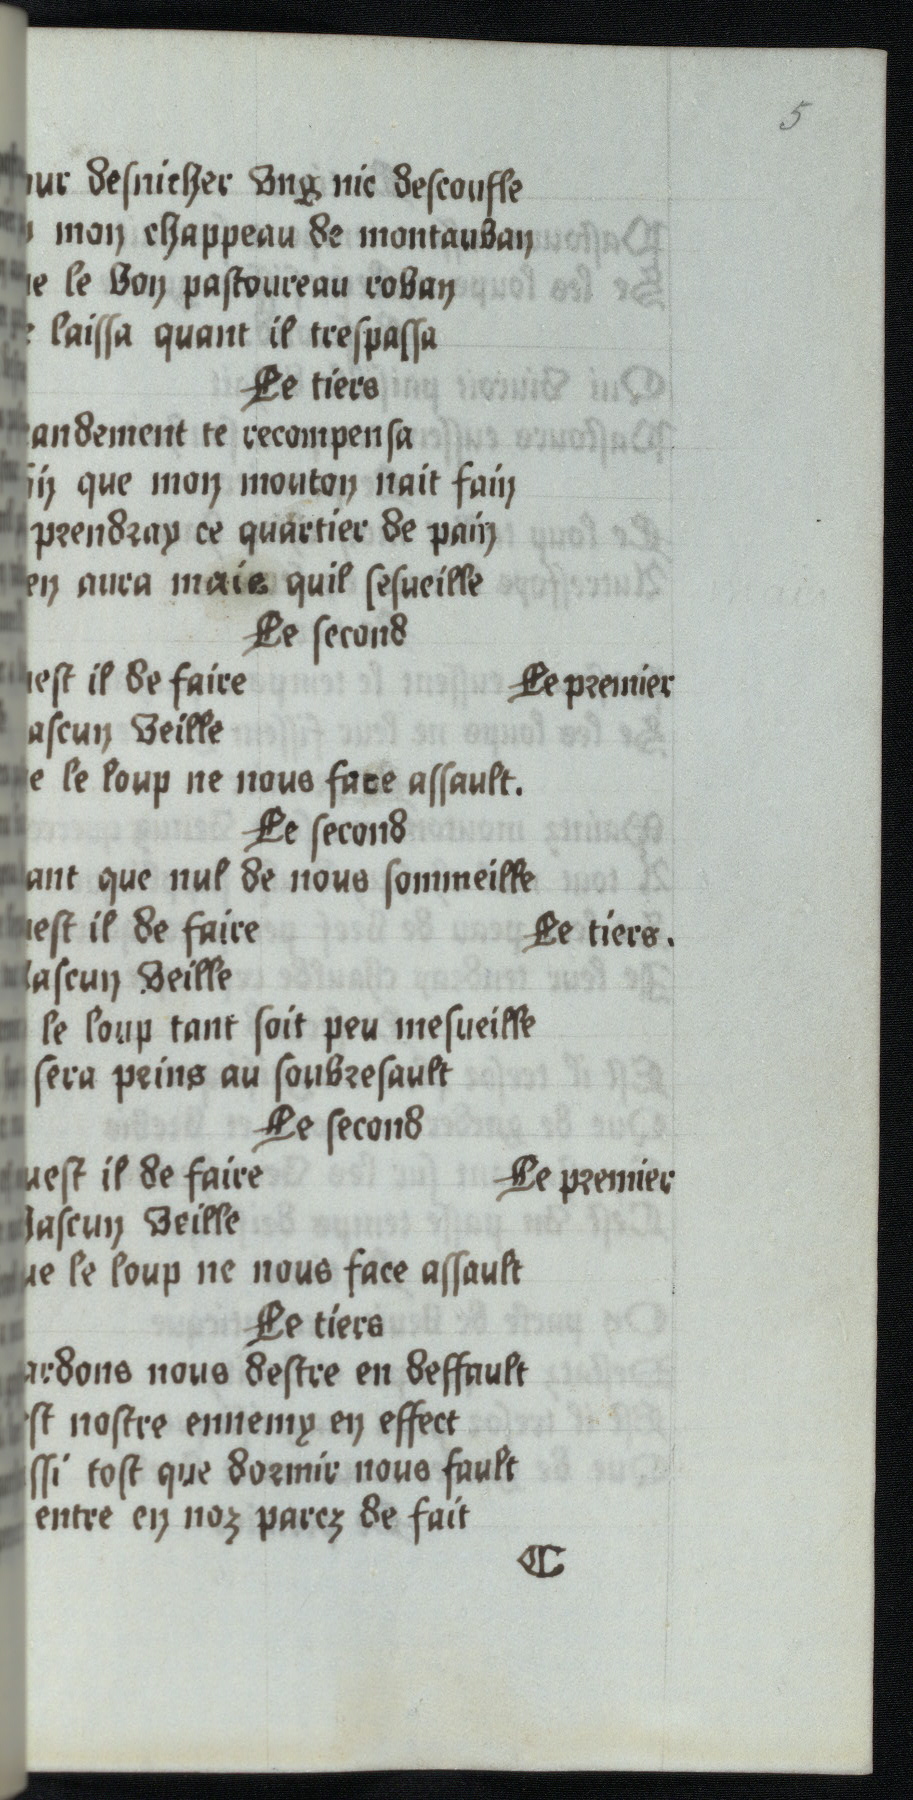 5
ur desnicher vng nic descoufle
mon chappeau de montauban
e le bon pastoureau roban
laissa quant il trespassa
Le tiers
andement te recompensa
que mon mouton nait fain
prendray ce quartier de pain
en aura mais quil sesueille
Le second
est il de faire Le premier
ascun veille
e le loup ne nous face assault.
Le second
ant que nul de nous sommeille
uest il de faire Le tiers.
ascun veille
le loup tant soit peu mesueille
sera prins au soubresault
Le second
uest il de faire Le premier
ascun veille
ue le loup ne nous face assault
Le tiers
ardons nous destre en deffault
st nostre ennemy en effect
ssi tost que dormir nous fault
entre en noz parcz de fait
C